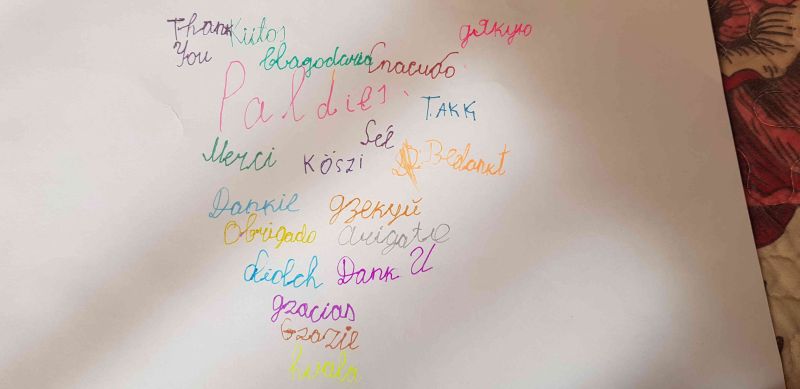 Thank Kiitos дякую
You blagodaria Спасибо
Paldies
TAKK
Merci Köszi
Bedankt
Dankie дзекуй
Obrigado arigato
diolch Dank U
gracias
Grazie
hvala